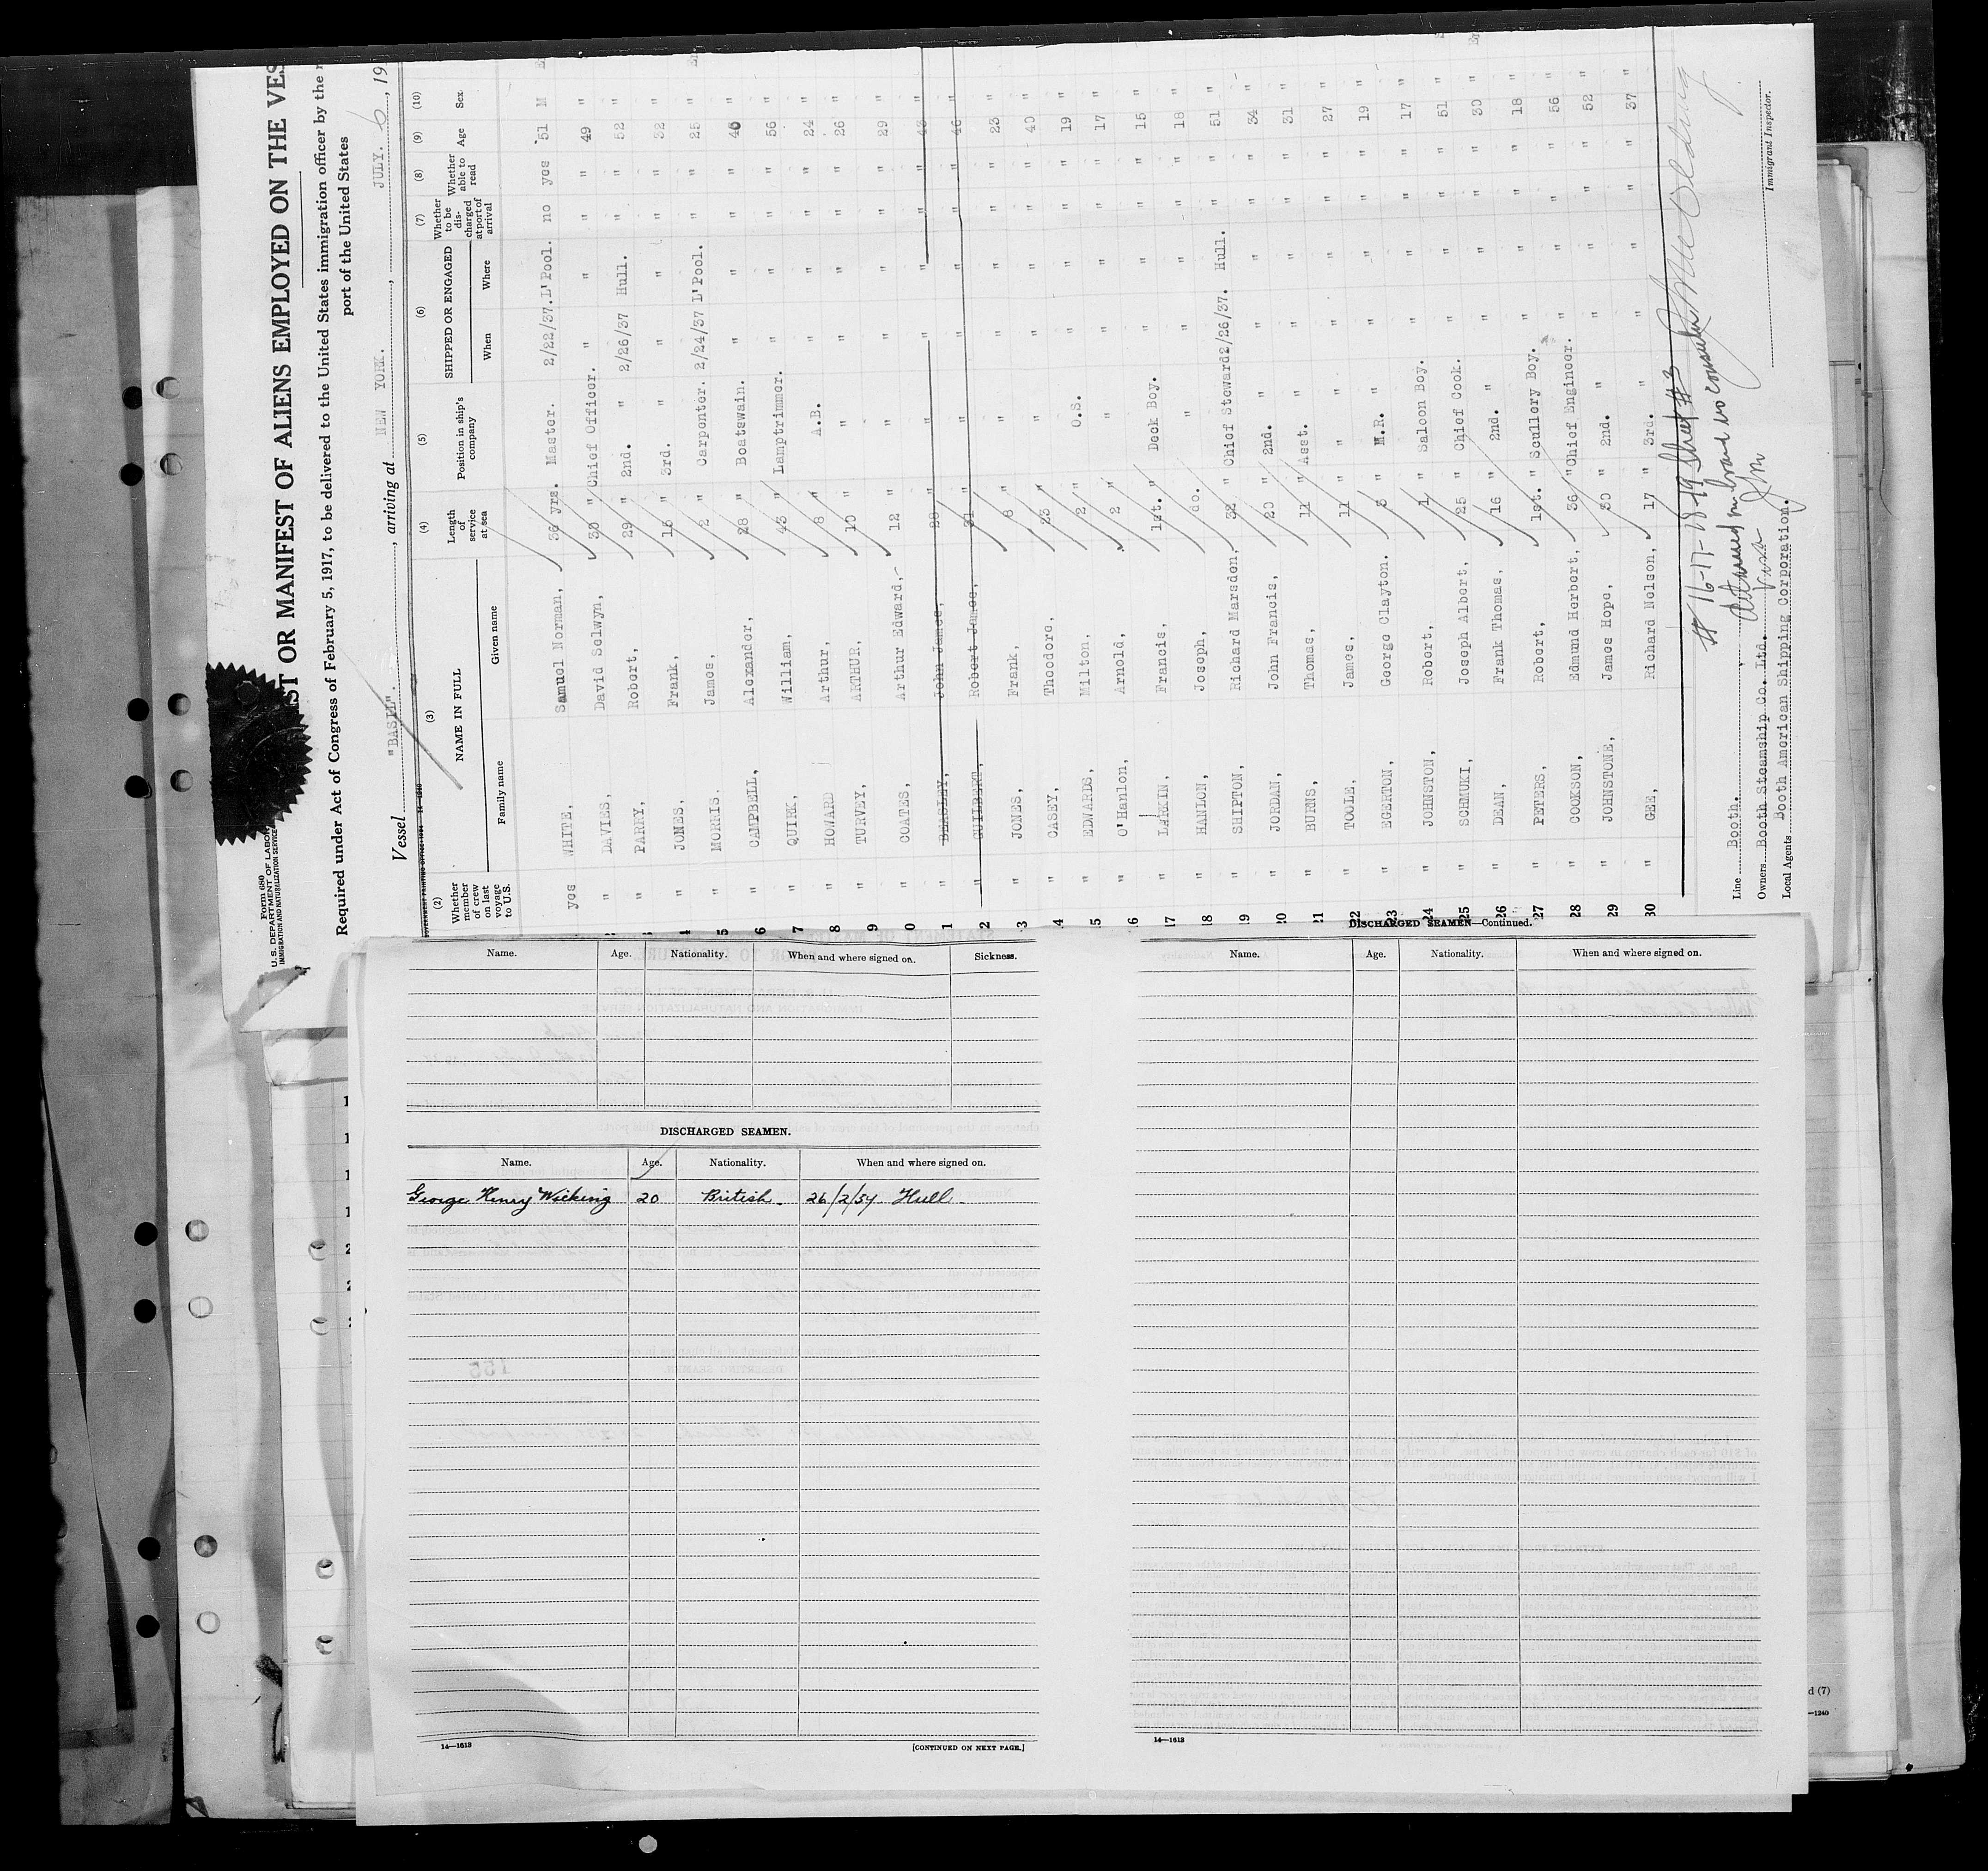 Form 680
U. S. DEPARTMENT OF LABOR
IMMIGRATION AND NATURALIZATION SERVICE
ST OR MANIFEST OF ALIENS EMPLOYED ON THE VES
Required under Act of Congress of February 5, 1917, to be delivered to the United States immigration officer by the r
port of the United States
Vessel "BASIL". , arriving at NEW YORK. , JULY. 6 , 19
(2) (3) (4) (5) (6) (7) (8) (9) (10)
Whether member of crew on last voyage to U.S. NAME IN FULL Family name Given name Length of service at sea Position in ship's company SHIPPED OR ENGAGED When Where Whether to be discharged at port of arrival Whether able to read Age Sex
yes WHITE, Samuel Norman, 36 yrs. Master. 2/22/37. L'Pool. no yes 51 M
" DAVIES, David Selwyn, 30 " Chief Officer. " " " " 49 "
" PARRY, Robert, 29 " 2nd. " 2/26/37 Hull. " " 52 "
4 " JONES, Frank, 15 " 3rd. " " " " " 32 "
5 " MORRIS. James, 2 " Carpenter. 2/24/37 L'Pool. " " 25 "
6 " CAMPBELL, Alexander, 28 " Boatswain. " " " " 40 "
7 " QUIRK, William, 43 " Lamptrimmer. " " " " 56 "
8 " HOWARD Arthur, 8 " A.B. " " " " 24 "
9 " TURVEY, ARTHUR, 10 " " " " " " 26 "
0 " COATES, Arthur Edward, 12 " " " " " " 29 "
1 " BEASLEY, John James, 28 " " " " " " 43 "
2 " GUILBERT, Robert James, 31 " " " " " " 46 "
3 " JONES, Frank, 8 " " " " " " 23 "
4 " CASEY, Theodore, 23 " " " " " " 40 "
5 " EDWARDS, Milton, 2 " O.S. " " " " 19 "
16 " O'Hanlon, Arnold, 2 " " " " " " 17 "
17 " LARKIN, Francis, 1st. " Deck Boy. " " " " 15 "
18 " HANLON, Joseph, do. " " " " " 18 "
19 " SHIPTON, Richard Marsden, 32 " Chief Steward 2/26/37. Hull. " " 51 "
20 " JORDAN, John Francis, 20 " 2nd. " " " " " 34 "
21 " BURNS, Thomas, 11 " Asst. " " " " " 31 "
22 " TOOLE, James, 11 " " " " " " 27 "
23 " EGERTON, George Clayton. 3 " M.R. " " " " " 19 "
24 " JOHNSTON, Robert, 1 " Saloon Boy. " " " " 17 "
25 " SCHMUKI, Joseph Albert, 25 " Chief Cook. " " " " 51 "
26 " DEAN, Frank Thomas, 16 " 2nd. " " " " " 30 "
27 " PETERS, Robert, 1st. " Scullery Boy. " " " " 18 "
28 " COOKSON, Edmund Herbert, 36 " Chief Engineer. " " " " 56 "
29 " JOHNSTONE, James Hope, 30 " 2nd. " " " " " 52 "
30 " GEE, Richard Nelson, 17 " 3rd. " " " " " 37 "
# 16-17-18-19 Sheet # 3
Line Booth.
Owners Booth Steamship Co. Ltd.
Local Agents Booth American Shipping Corporation.
Immigrant Inspector.
Name. Age. Nationality. When and where signed on. Sickness.
DISCHARGED SEAMEN.
Name. Age. Nationality. When and where signed on.
George Henry Wicking 20 British. 26/2/37 Hull.
14—1613 [CONTINUED ON NEXT PAGE.]
DISCHARGED SEAMEN—Continued.
Name. Age. Nationality. When and where signed on.
14—1613
d (7)
—1240